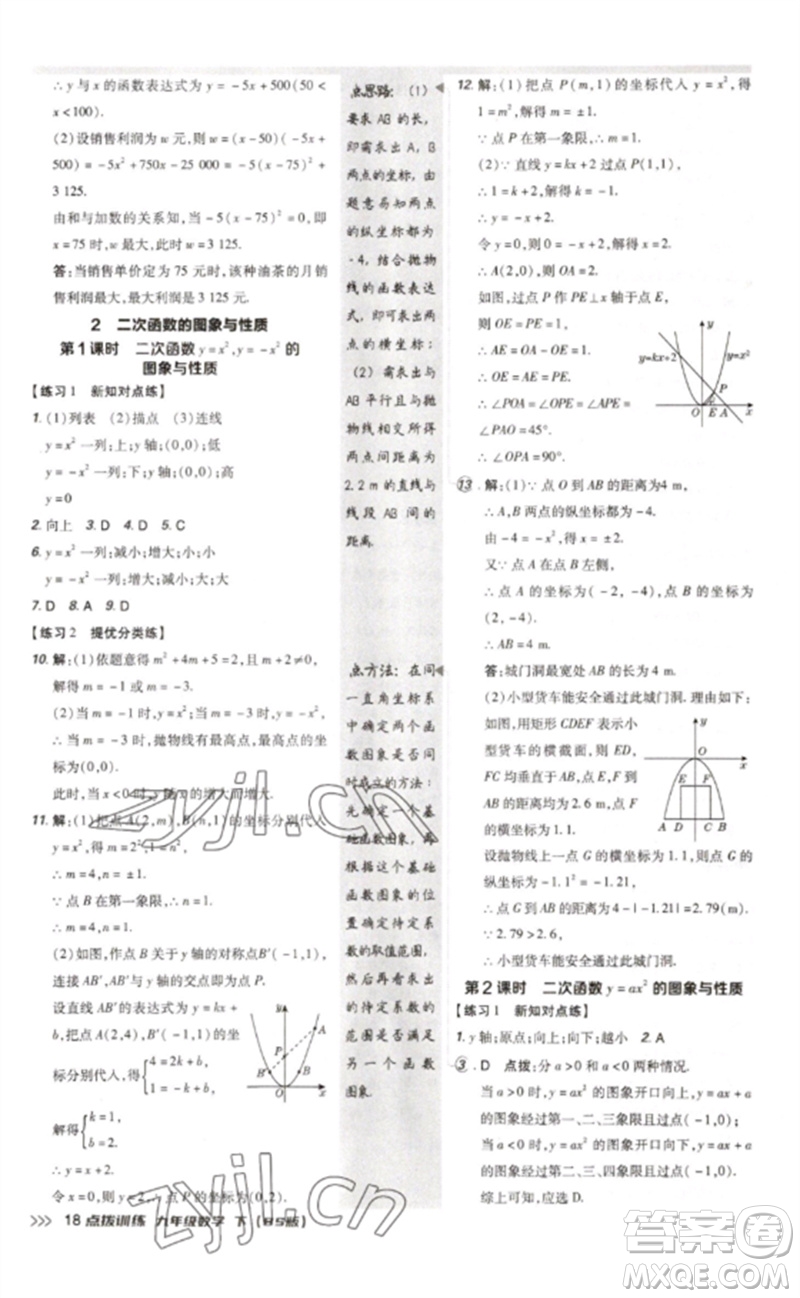 ∴ y 与 x 的函数表达式为 y = -5x + 500(50 <
x < 100).
(2)设销售利润为 w 元,则 w = (x - 50)( - 5x +
500) = -5x² + 750x - 25 000 = -5(x - 75)² +
3 125.
由和与加数的关系知,当 -5(x - 75)² = 0,即
x = 75 时,w 最大,此时 w = 3 125.
答:当销售单价定为 75 元时,该种油茶的月销
售利润最大,最大利润是 3 125 元.
2 二次函数的图象与性质
第1课时 二次函数 y = x², y = -x² 的
图象与性质
【练习1 新知对点练】
1. (1)列表 (2)描点 (3)连线
y = x² 一列:上;y 轴;(0,0);低
y = -x² 一列:下;y 轴;(0,0);高
y = 0
2. 向上 3. D 4. D 5. C
6. y = x² 一列:减小;增大;小;小
y = -x² 一列:增大;减小;大;大
7. D 8. A 9. D
【练习2 提优分类练】
10. 解:(1)依题意得 m² + 4m + 5 = 2,且 m ≠ 0,
解得 m = -1 或 m = -3.
(2)当 m = -1 或 m = -3 时,抛物线有最高点,最高点的坐
标为(0,0).
此时,当 x < 0 时,y 随 x 的增大而增大.
11. 解:(1)把点 A(2,m),B(n,1)的坐标分别代入
y = x²,得 m = 4, 1 = n².
∴ m = 4, n = ±1.
∵ 点 B 在第一象限,∴ n = 1.
(2)如图,作点 B 关于 y 轴的对称点B′(-1,1),
连接 AB′,AB′与 y 轴的交点即为点 P.
设直线 AB′的函数表达式为 y = kx + b,
把点 A(2,4),B′(-1,1)的坐
标分别代入,得{4 = 2k + b,
1 = -k + b,
解得{k = 1,
b = 2.
∴ y = x + 2.
令 x = 0,则 y = 2,即点 P 的坐标为(0,2).
y A P B′ B O x
>>> 18 点拨训练 九年级数学 下 (BS版)
点思路: (1)
要求 AB 的长,
即需求出 A, B
两点的坐标,由
题意易知两点
的纵坐标都为
-4,结合抛物
线的函数表达
式,即可求得两
点的横坐标;
(2) 需求出与
AB 平行且与抛
物线相交所得
两点间距离为
2.2 m 的直线与
线段 AB 间的
距离.
点方法:在同
一直角坐标系
中确定两个函
数图象是否同
时成立的方法:
先确定一个基
础函数图象,再
根据这个基础
函数图象的位
置确定待定系
数的取值范围,
然后再看求出
的待定系数的
范围是否满足
另一个函数
图象.
12. 解:(1)把点 P(m,1)的坐标代入 y = x²,得
1 = m²,解得 m = ±1.
∵ 点 P 在第一象限,∴ m = 1.
(2)∵ 直线 y = kx + 2 过点 P(1,1),
∴ 1 = k + 2,解得 k = -1.∴ y = -x + 2.
令 y = 0,则 0 = -x + 2,解得 x = 2.
∴ A(2,0),所以 OA = 2.
如图,过点 P 作 PE⊥x 轴于点 E,
则 OE = PE = 1.
∴ AE = OA - OE = 1.
∴ OE = AE = PE.
∴ ∠POA = ∠OPE = ∠APE =
∠PAO = 45°.
∴ ∠OPA = 90°.
y y=kx+2 y=x² P O E A x
13. 解:(1)∵ 点 O 到 AB 的距离为4 m,
∴ A,B 两点的纵坐标都为 -4.
由 -4 = -x²,得 x = ±2.
又∵ 点 A 在点 B 左侧,
∴ 点 A 的坐标为( -2, -4),点 B 的坐标为
(2, -4).
∴ AB = 4 m.
答:城门洞最宽处 AB 为 4 m.
(2)小型货车能安全通过此城门洞.理由如下:
如图,用矩形 CDEF 表示小
型货车的横截面,则 ED,
FC 均垂直于 x 轴,设点 G
为抛物线上一点,当点 G
的横坐标为 1.1,
y O x E F A D C B
设抛物线上一点 G 的横坐标为 1.1,则点 G 的
纵坐标为 -1.1² = -1.21.
∴ 点 G 到 AB 的距离为 4 - | -1.21| = 2.79(m).
∵ 2.79 > 2.6,
∴ 小型货车能安全通过此城门洞.
第2课时 二次函数 y = ax² 的图象与性质
【练习1 新知对点练】
1. y 轴;原点;向上;向下;越小 2. A
3. D 点拨:分 a > 0 和 a < 0 两种情况.
当 a > 0 时,y = ax² 的图象开口向上,y = ax + a
的图象经过第一、二、三象限且过点( -1,0);
当 a < 0 时,y = ax² 的图象开口向下,y = ax + a
的图象经过第二、三、四象限且过点( -1,0).
综上可知,应选D.
zyjl.cn
zyjl.cn
答案圈
MXQE.COM